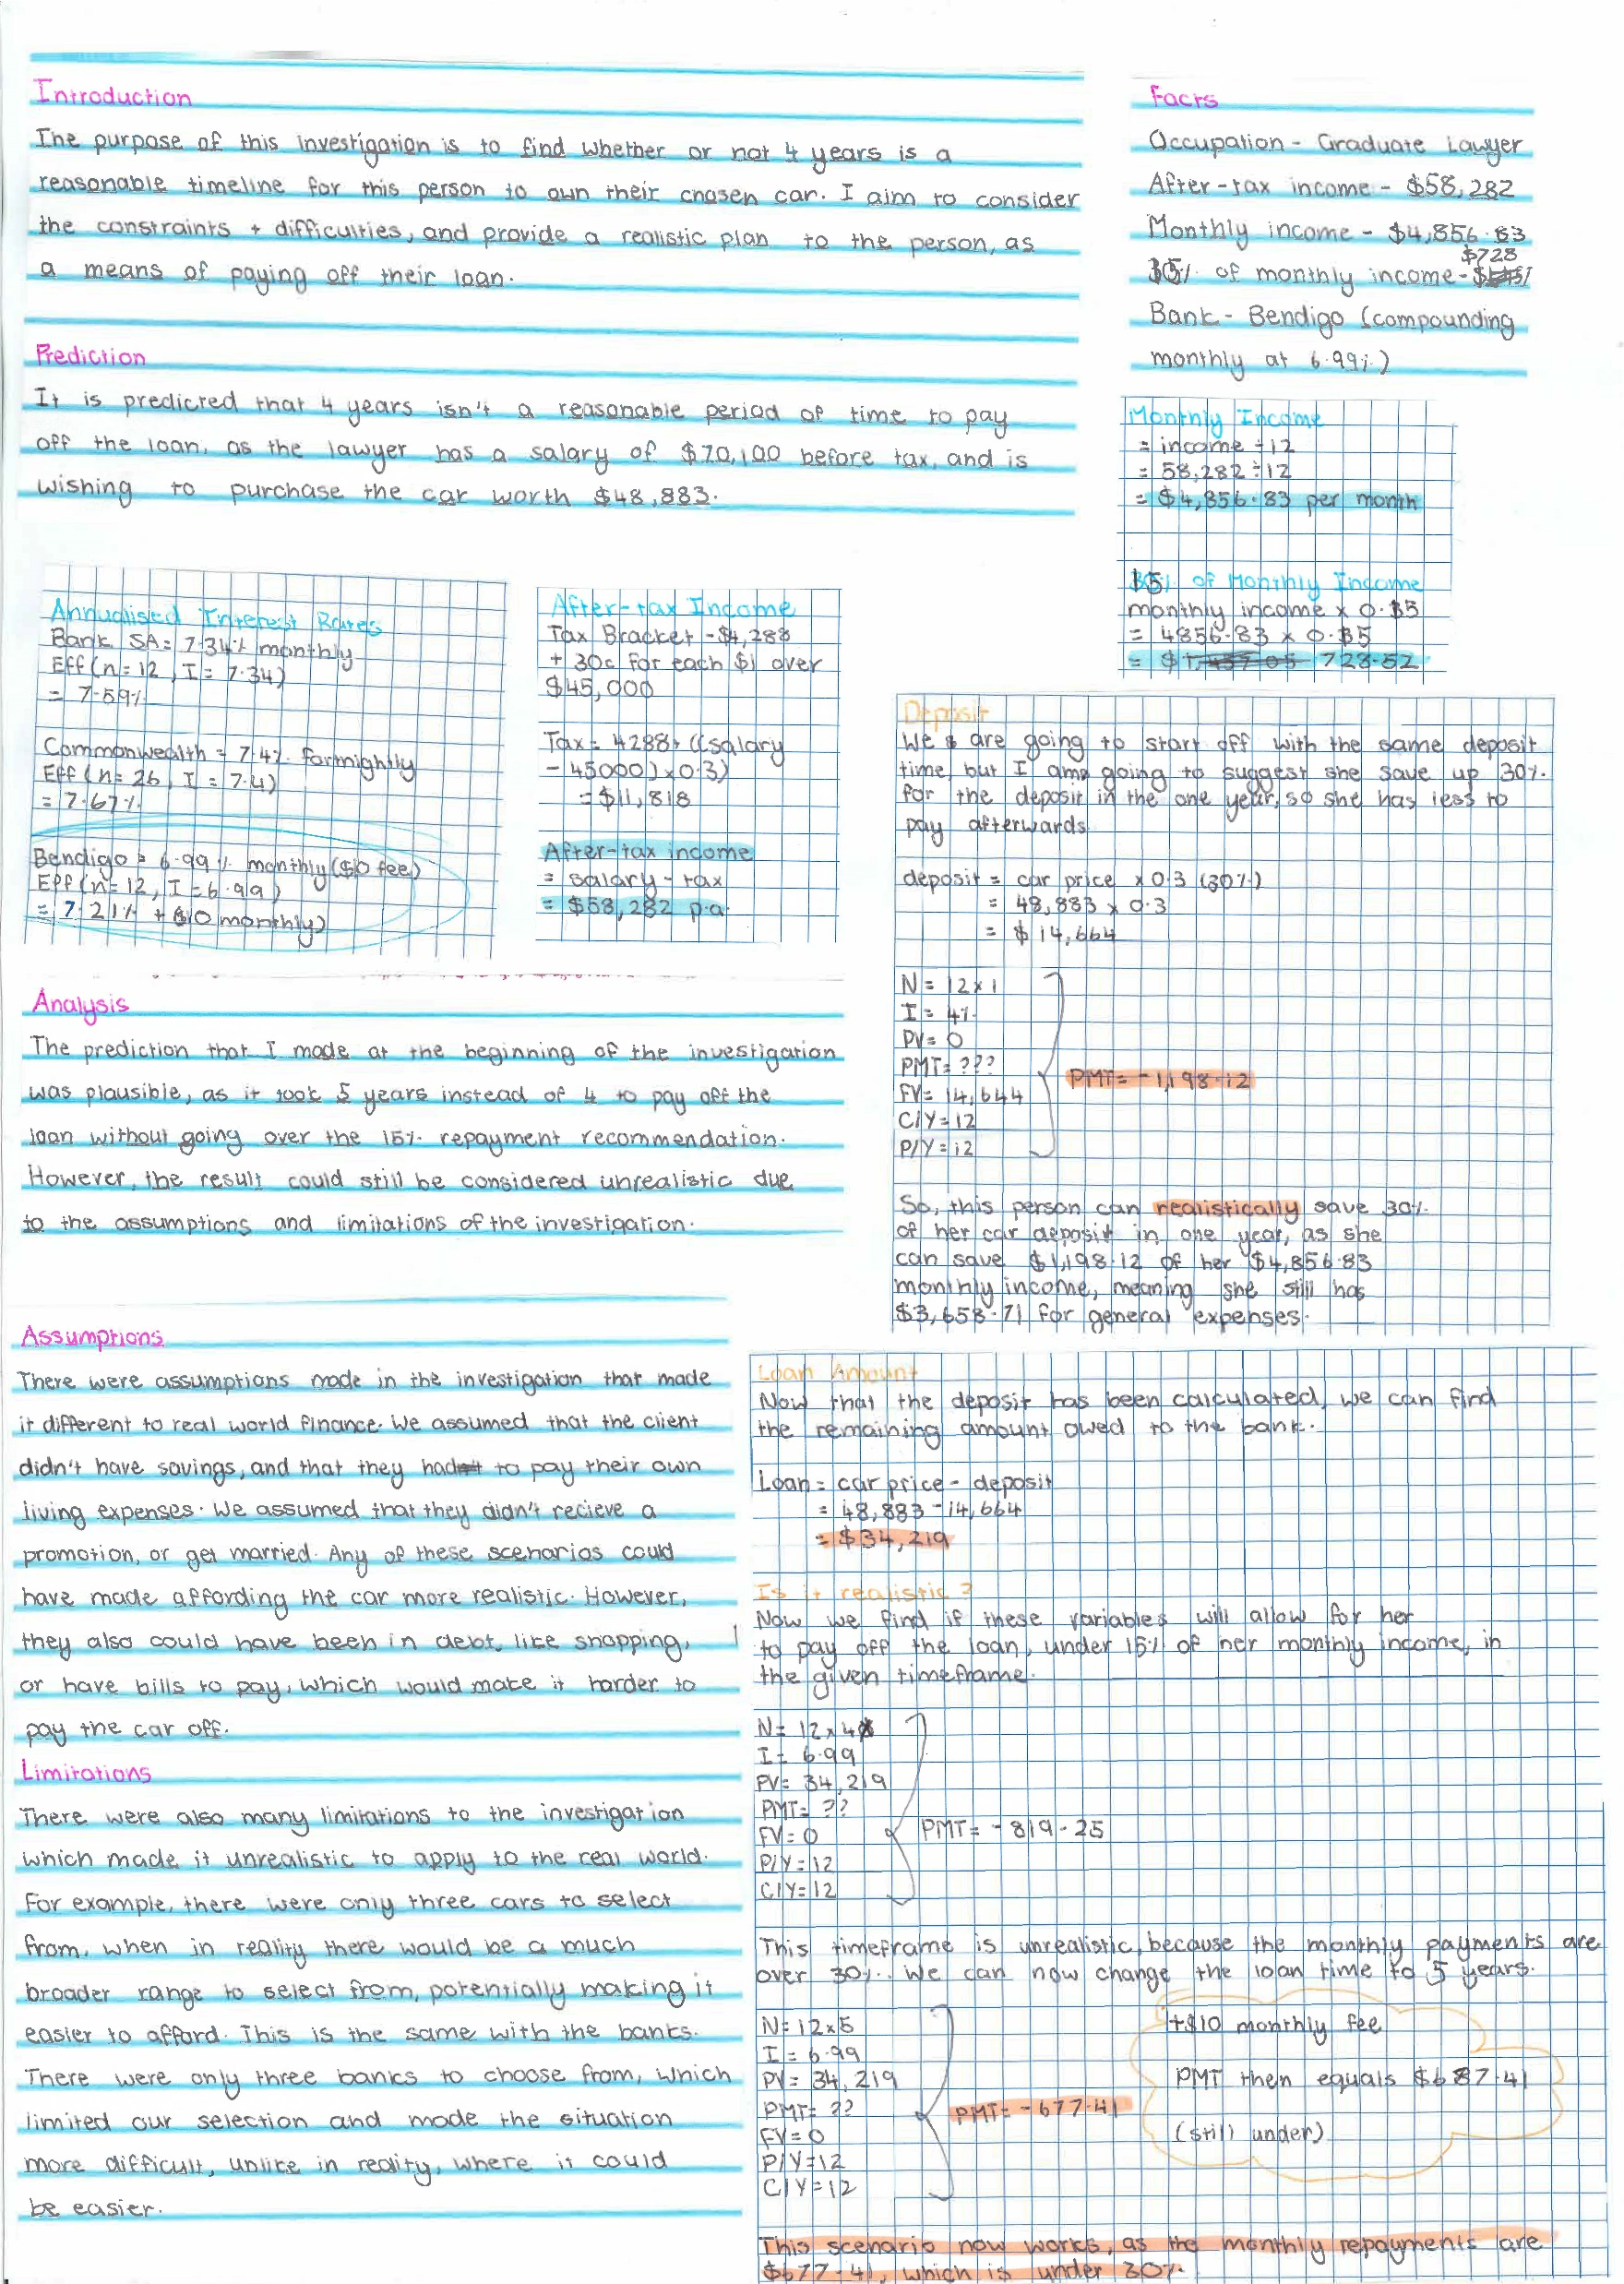 Introduction
The purpose of this investigation is to find whether or not 4 years is a
reasonable timeline for this person to own their chosen car. I aim to consider
the constraints + difficulties, and provide a realistic plan to the person, as
a means of paying off their loan.
Prediction
It is predicted that 4 years isn't a reasonable period of time to pay
off the loan, as the lawyer has a salary of $70,100 before tax, and is
wishing to purchase the car worth $48,883.
Facts
Occupation - Graduate Lawyer
After-tax income - $58,282
Monthly income - $4,856.83
$728
15% of monthly income - $
Bank - Bendigo (compounding
monthly at 6.99%)
Monthly Income
= income ÷ 12
= 58,282 ÷ 12
= $4,856.83 per month
15% of Monthly Income
monthly income x 0.15
= 4856.83 x 0.15
= $1,457.05 728.52
Annualised Interest Rates
Bank SA = 7.34% monthly
Eff (n=12, I = 7.34)
= 7.59%
Commonwealth = 7.4% fortnightly
Eff (n= 26, I = 7.4)
= 7.67%
Bendigo = 6.99% monthly ($10 fee)
Eff (n= 12, I = 6.99)
= 7.21% + $10 monthly)
After-tax Income
Tax Bracket - $4,288
+ 30c for each $1 over
$45,000
Tax = 4288 + ((salary
- 45000) x 0.3)
= $11,818
After-tax income
= salary - tax
= $58,282 p.a.
Deposit
We are going to start off with the same deposit
time, but I am going to suggest she save up 30%
for the deposit in the one year, so she has less to
pay afterwards.
deposit = car price x 0.3 (30%)
= 48,883 x 0.3
= $14,664
N = 12x1
I = 4%
PV = 0
PMT = ???
FV = 14,644
C/Y = 12
P/Y = 12
PMT = -1,198.12
So, this person can realistically save 30%
of her car deposit in one year, as she
can save $1,198.12 of her $4,856.83
monthly income, meaning she still has
$3,658.71 for general expenses.
Analysis
The prediction that I made at the beginning of the investigation
was plausible, as it took 5 years instead of 4 to pay off the
loan without going over the 15% repayment recommendation.
However, the result could still be considered unrealistic due
to the assumptions and limitations of the investigation.
Assumptions
There were assumptions made in the investigation that made
it different to real world finance. We assumed that the client
didn't have savings, and that they had to pay their own
living expenses. We assumed that they didn't recieve a
promotion, or get married. Any of these scenarios could
have made affording the car more realistic. However,
they also could have been in debt, like shopping,
or have bills to pay, which would make it harder to
pay the car off.
Limitations
There were also many limitations to the investigation
which made it unrealistic to apply to the real world.
For example, there were only three cars to select
from, when in reality there would be a much
broader range to select from, potentially making it
easier to afford. This is the same with the banks.
There were only three banks to choose from, which
limited our selection and made the situation
more difficult, unlike in reality, where it could
be easier.
Loan Amount
Now that the deposit has been calculated, we can find
the remaining amount owed to the bank.
Loan = car price - deposit
= 48,883 - 14,664
= $34,219
Is it realistic?
Now we find if these variables will allow for her
to pay off the loan, under 15% of her monthly income, in
the given timeframe.
N = 12 x 4
I = 6.99
PV = 34,219
PMT = ??
FV = 0
P/Y = 12
C/Y = 12
PMT = -819.25
This timeframe is unrealistic, because the monthly payments are
over 30%. We can now change the loan time to 5 years.
N = 12x5
I = 6.99
PV = 34,219
PMT = ??
FV = 0
P/Y = 12
C/Y = 12
PMT = -677.41
+$10 monthly fee
PMT then equals $687.41
(still under)
This scenario now works, as the monthly repayments are
$677.41, which is under 30%.